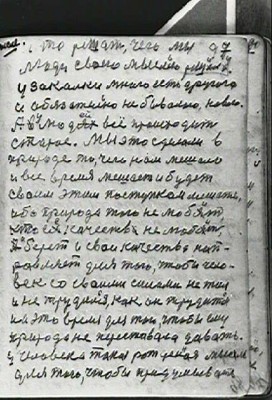 что решат, чего мы 97
люди своею мыслью решили
у закалки много есть другого
и обязательно небывалого, нового.
А в людях всё происходит
старое. Мы это сделали в
природе то, чего нам мешало
и все время мешает и будет
своим этим поступком мешать,
ибо природа того не любит
его качества не любит,
А берет и свои качества нап-
равляет для того, чтобы чело-
век со своими силами не жил
и не трудился, как он трудится
на это время для того, чтобы ему
природа не переставала давать.
У человека такая рожденная мысль
для того, чтобы придумывал